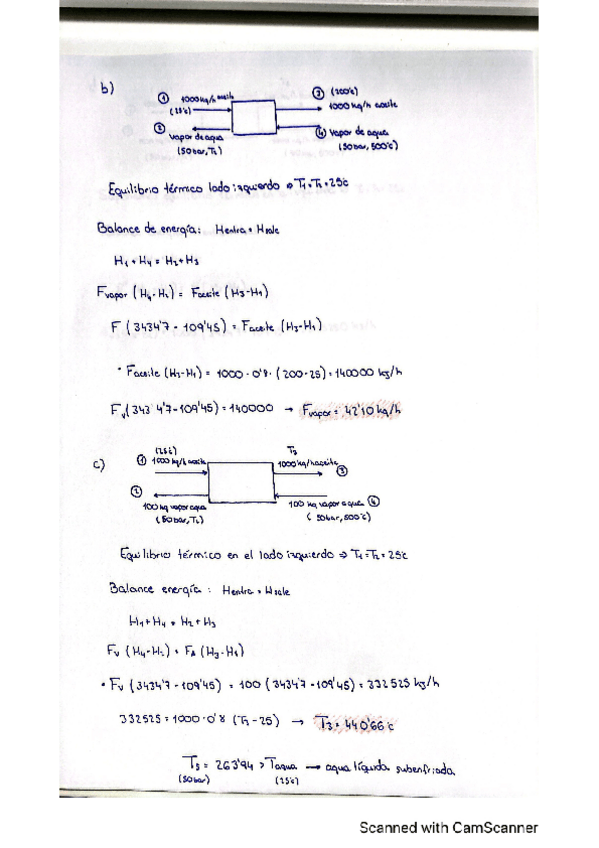 b)
① 1000 kg/h aceite
(25ºc)
③ (200ºc)
1000 kg/h aceite
② vapor de agua
(50 bar, T₂)
④ vapor de agua
(50 bar, 500ºc)
Equilibrio térmico lado izquierdo ⇒ T₁=T₂=25ºc
Balance de energía: Hentra = Hsale
H₁ + H₄ = H₂ + H₃
Fvapor (H₄-H₂) = Faceite (H₃-H₁)
F (3434'7 - 109'45) = Faceite (H₃-H₁)
• Faceite (H₃-H₁) = 1000 · 0'8 · (200-25) = 140000 kJ/h
Fᵥ (3434'7-109'45) = 140000 → Fvapor = 42'10 kg/h
c)
(25ºc)
① 1000 kg/h aceite
T₃
1000 kg/h aceite ③
②
100 kg vapor agua
(50 bar, T₂)
100 kg vapor agua ④
(50 bar, 500ºc)
Equilibrio térmico en el lado izquierdo ⇒ T₁=T₂=25ºc
Balance energía: Hentra = Hsale
H₁+H₄ = H₂+H₃
Fᵥ (H₄-H₂) = F_A (H₃-H₁)
• Fᵥ (3434'7 - 109'45) = 100 (3434'7-109'45) = 332525 kJ/h
332525 = 1000·0'8 (T₃-25) → T₃ = 440'66ºc
Ts = 263'94 > Tagua → agua líquida subenfriada.
(50bar) (25ºc)
Scanned with CamScanner